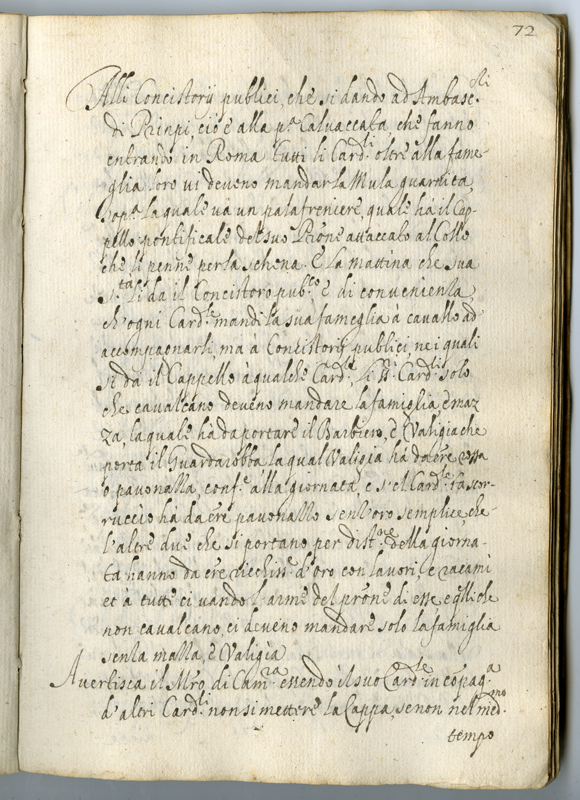 72
Alli Concistorij publici, che si danno ad Ambasc.ri
di Prinpi, cioè alla p.a Calvaccata che fanno
entrando in Roma tutti li Card.li oltre alla fame-
glia loro vi deveno mandar la Mula guarnita
sop.a la quale va un palafreniere, quale ha il Cap-
pello pontificale del suo Prone attaccato al Collo
che li penne per la schena. E la mattina che sua
S.ta li da il Concistoro pub.co è di convenienza
ch'ogni Card.le mandi la sua fameglia a cavallo ad
accompagnarli, ma a Concistorij publici, ne i quali
si da il Cappello à qualche Card.le, li SS.ri Card.li solo
che cavalcano deveno mandare la famiglia, è maz
za, la quale ha da portare il Barbiero, è Valigia che
porta il Guardarobba la qual Valigia ha da ere rossa
o pavonazza, conf.e alla giornata, e s'el Card.le fa scor-
ruccio ha da ere pavonazzo senz'oro semplice, che
l'altre due che si portano per dist.ne della giorna-
ta hanno da ere ricchiss.e d'oro con lavori, è racami
et à tutte ci vando l'arme del prone di esse, e qlli che
non cavalcano, ci deveno mandare solo la famiglia
senza mazza, è Valigia
Avertisca il Mro di Cam.ra essendo il suo Card.le in copag.a
d'altri Card.li non si mettere la Cappa, se non nel med.mo
tempo